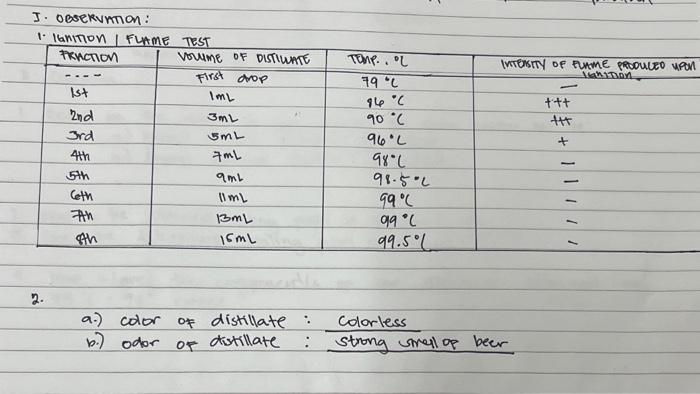 I. OBSERVATION:
1. IGNITION / FLAME TEST
FRACTION VOLUME OF DISTILLATE TEMP., °C INTENSITY OF FLAME PRODUCED UPON IGNITION
---- First drop 79 °C —
1st 1mL 86 °C +++
2nd 3mL 90 °C +++
3rd 5mL 96 °C +
4th 7mL 98 °C —
5th 9mL 98.5 °C —
6th 11mL 99 °C —
7th 13mL 99 °C —
8th 15mL 99.5 °C —
2.
a.) color of distillate : Colorless
b.) odor of distillate : strong smell of beer